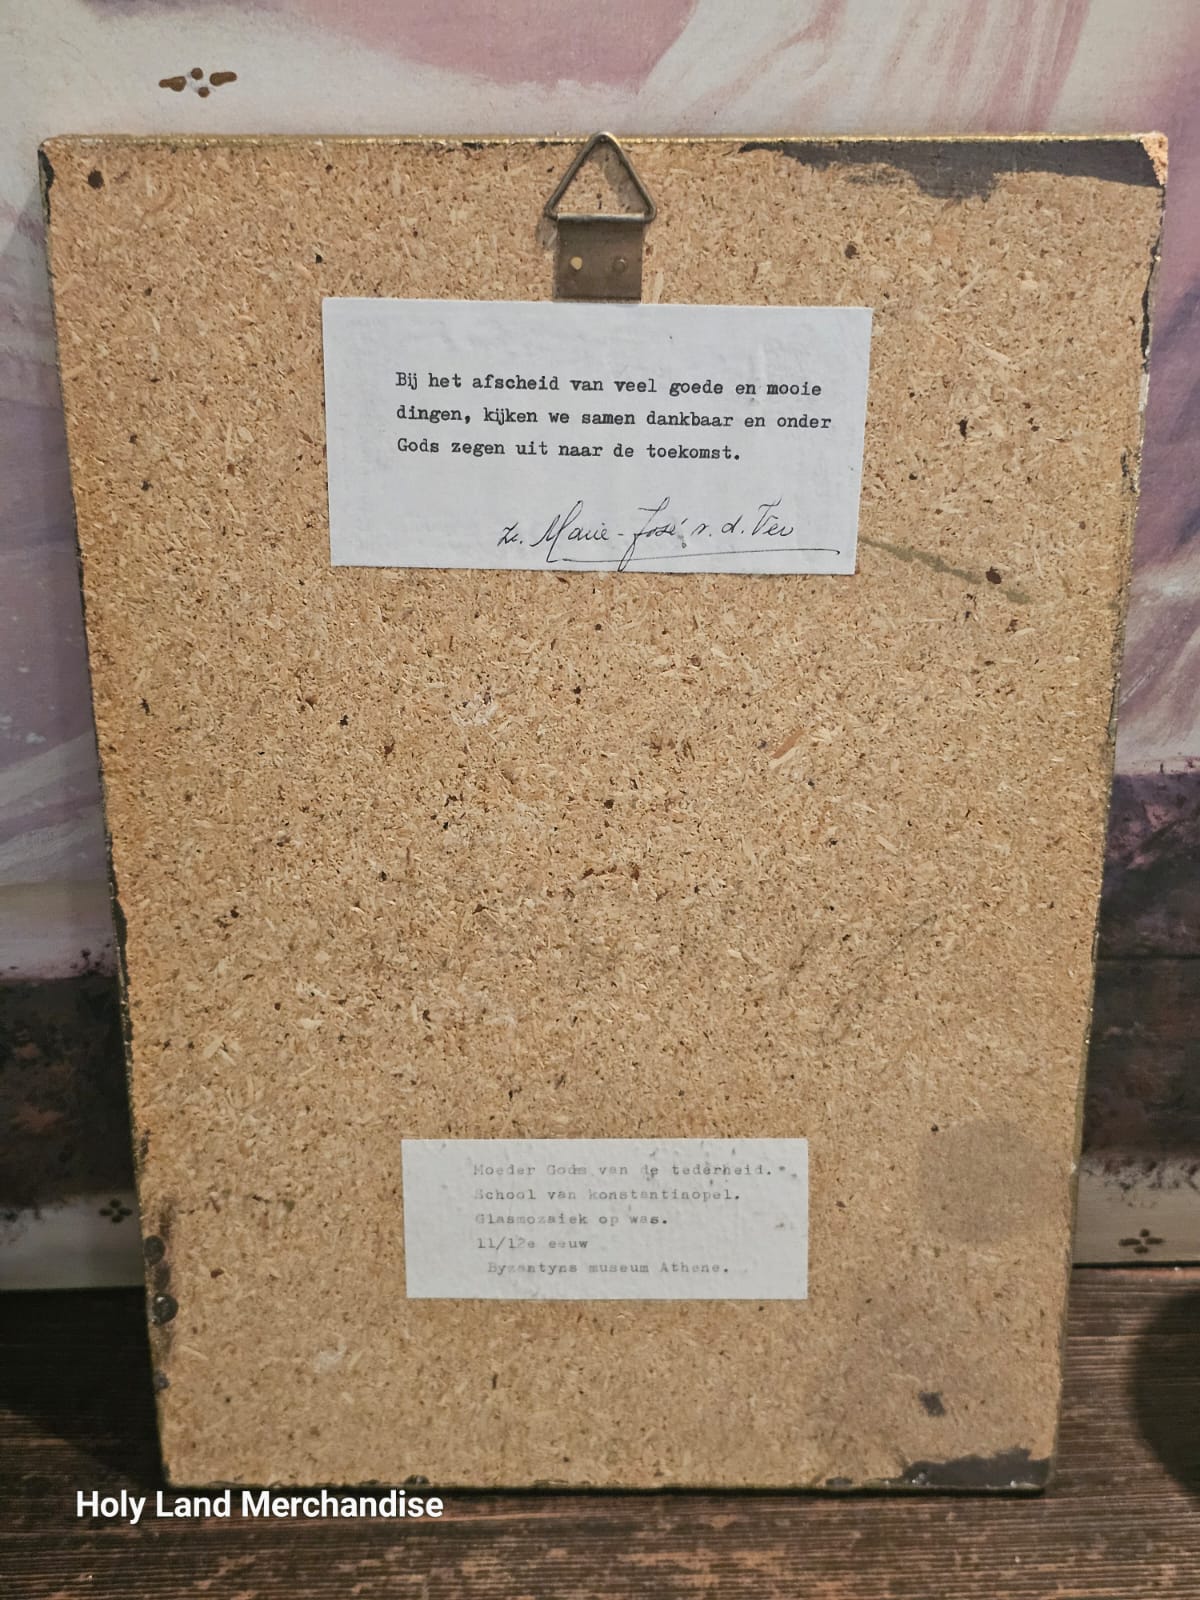 Bij het afscheid van veel goede en mooie
dingen, kijken we samen dankbaar en onder
Gods zegen uit naar de toekomst.
Zr. Marie-José v. d. Ven
Moeder Gods van de tederheid.
School van konstantinopel.
Glasmozaiek op was.
11/12e eeuw
Byzantyns museum Athene.
Holy Land Merchandise